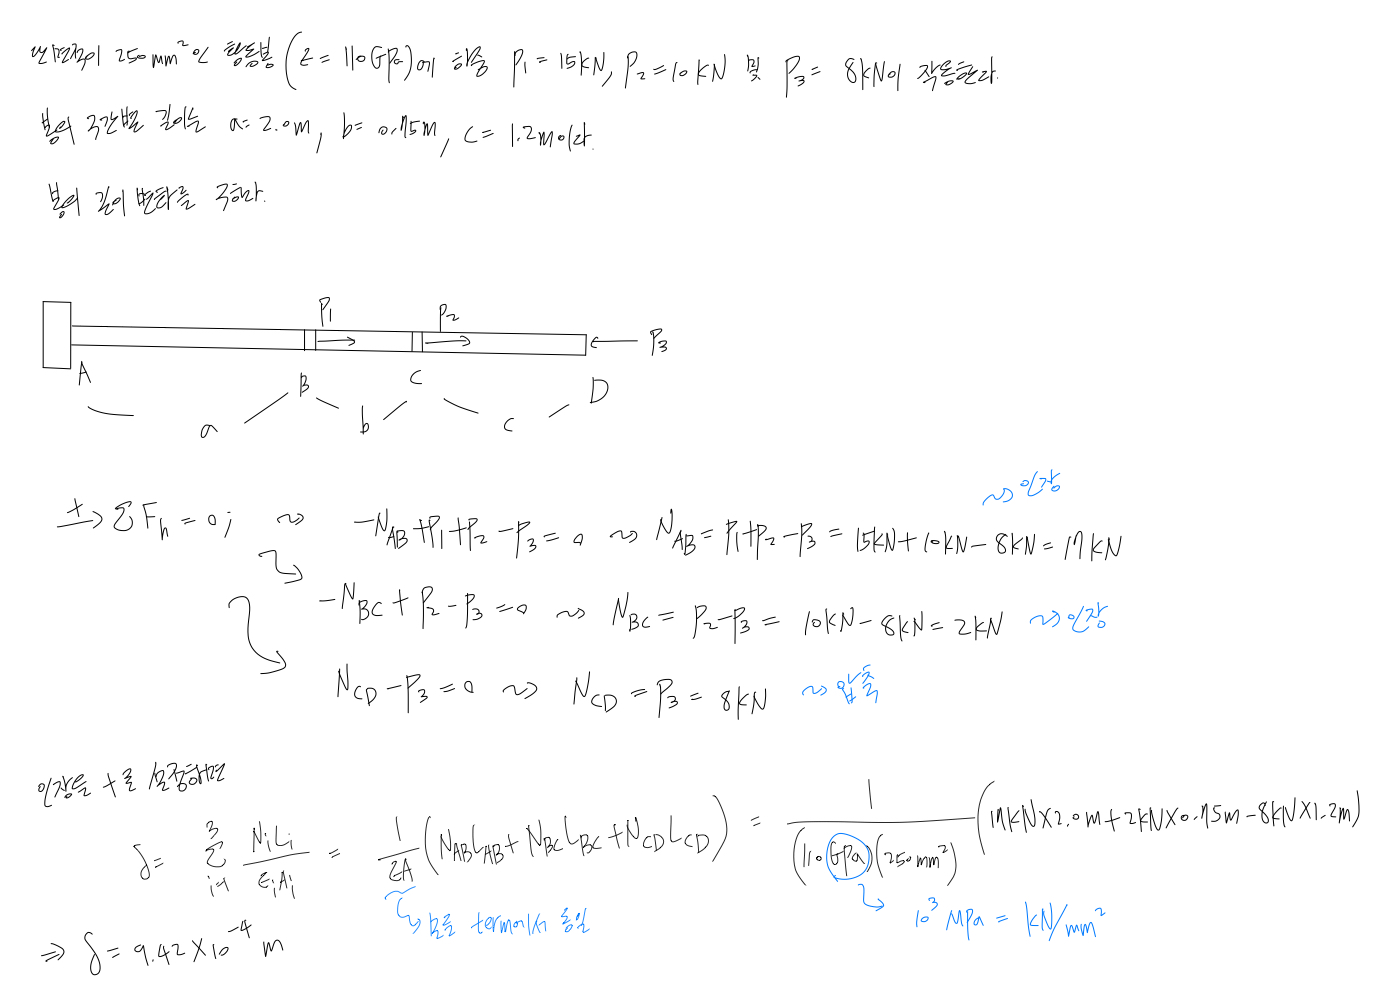 단면적이 250mm²인 황동봉(E = 110GPa)에 하중 P₁ = 15kN, P₂ = 10kN 및 P₃ = 8kN이 작용한다.
봉의 구간별 길이는 a = 2.0m, b = 0.75m, c = 1.2m이다.
봉의 길이 변화를 구하라.
P₁ P₂
P₃
A B C D
a b c
~> 인장
+→ ΣF_h = 0; ~> -N_AB + P₁ + P₂ - P₃ = 0 ~> N_AB = P₁ + P₂ - P₃ = 15kN + 10kN - 8kN = 17kN
-N_BC + P₂ - P₃ = 0 ~> N_BC = P₂ - P₃ = 10kN - 8kN = 2kN ~> 인장
N_CD - P₃ = 0 ~> N_CD = P₃ = 8kN ~> 압축
인장을 +로 설정하면
δ = Σ_{i=1}^{3} N_i L_i / E_i A_i = 1/EA (N_AB L_AB + N_BC L_BC + N_CD L_CD) = 1/((110GPa)(250mm²)) (17kN×2.0m + 2kN×0.75m - 8kN×1.2m)
모든 term에서 동일
10³ MPa = kN/mm²
⇒ δ = 9.42×10⁻⁴ m